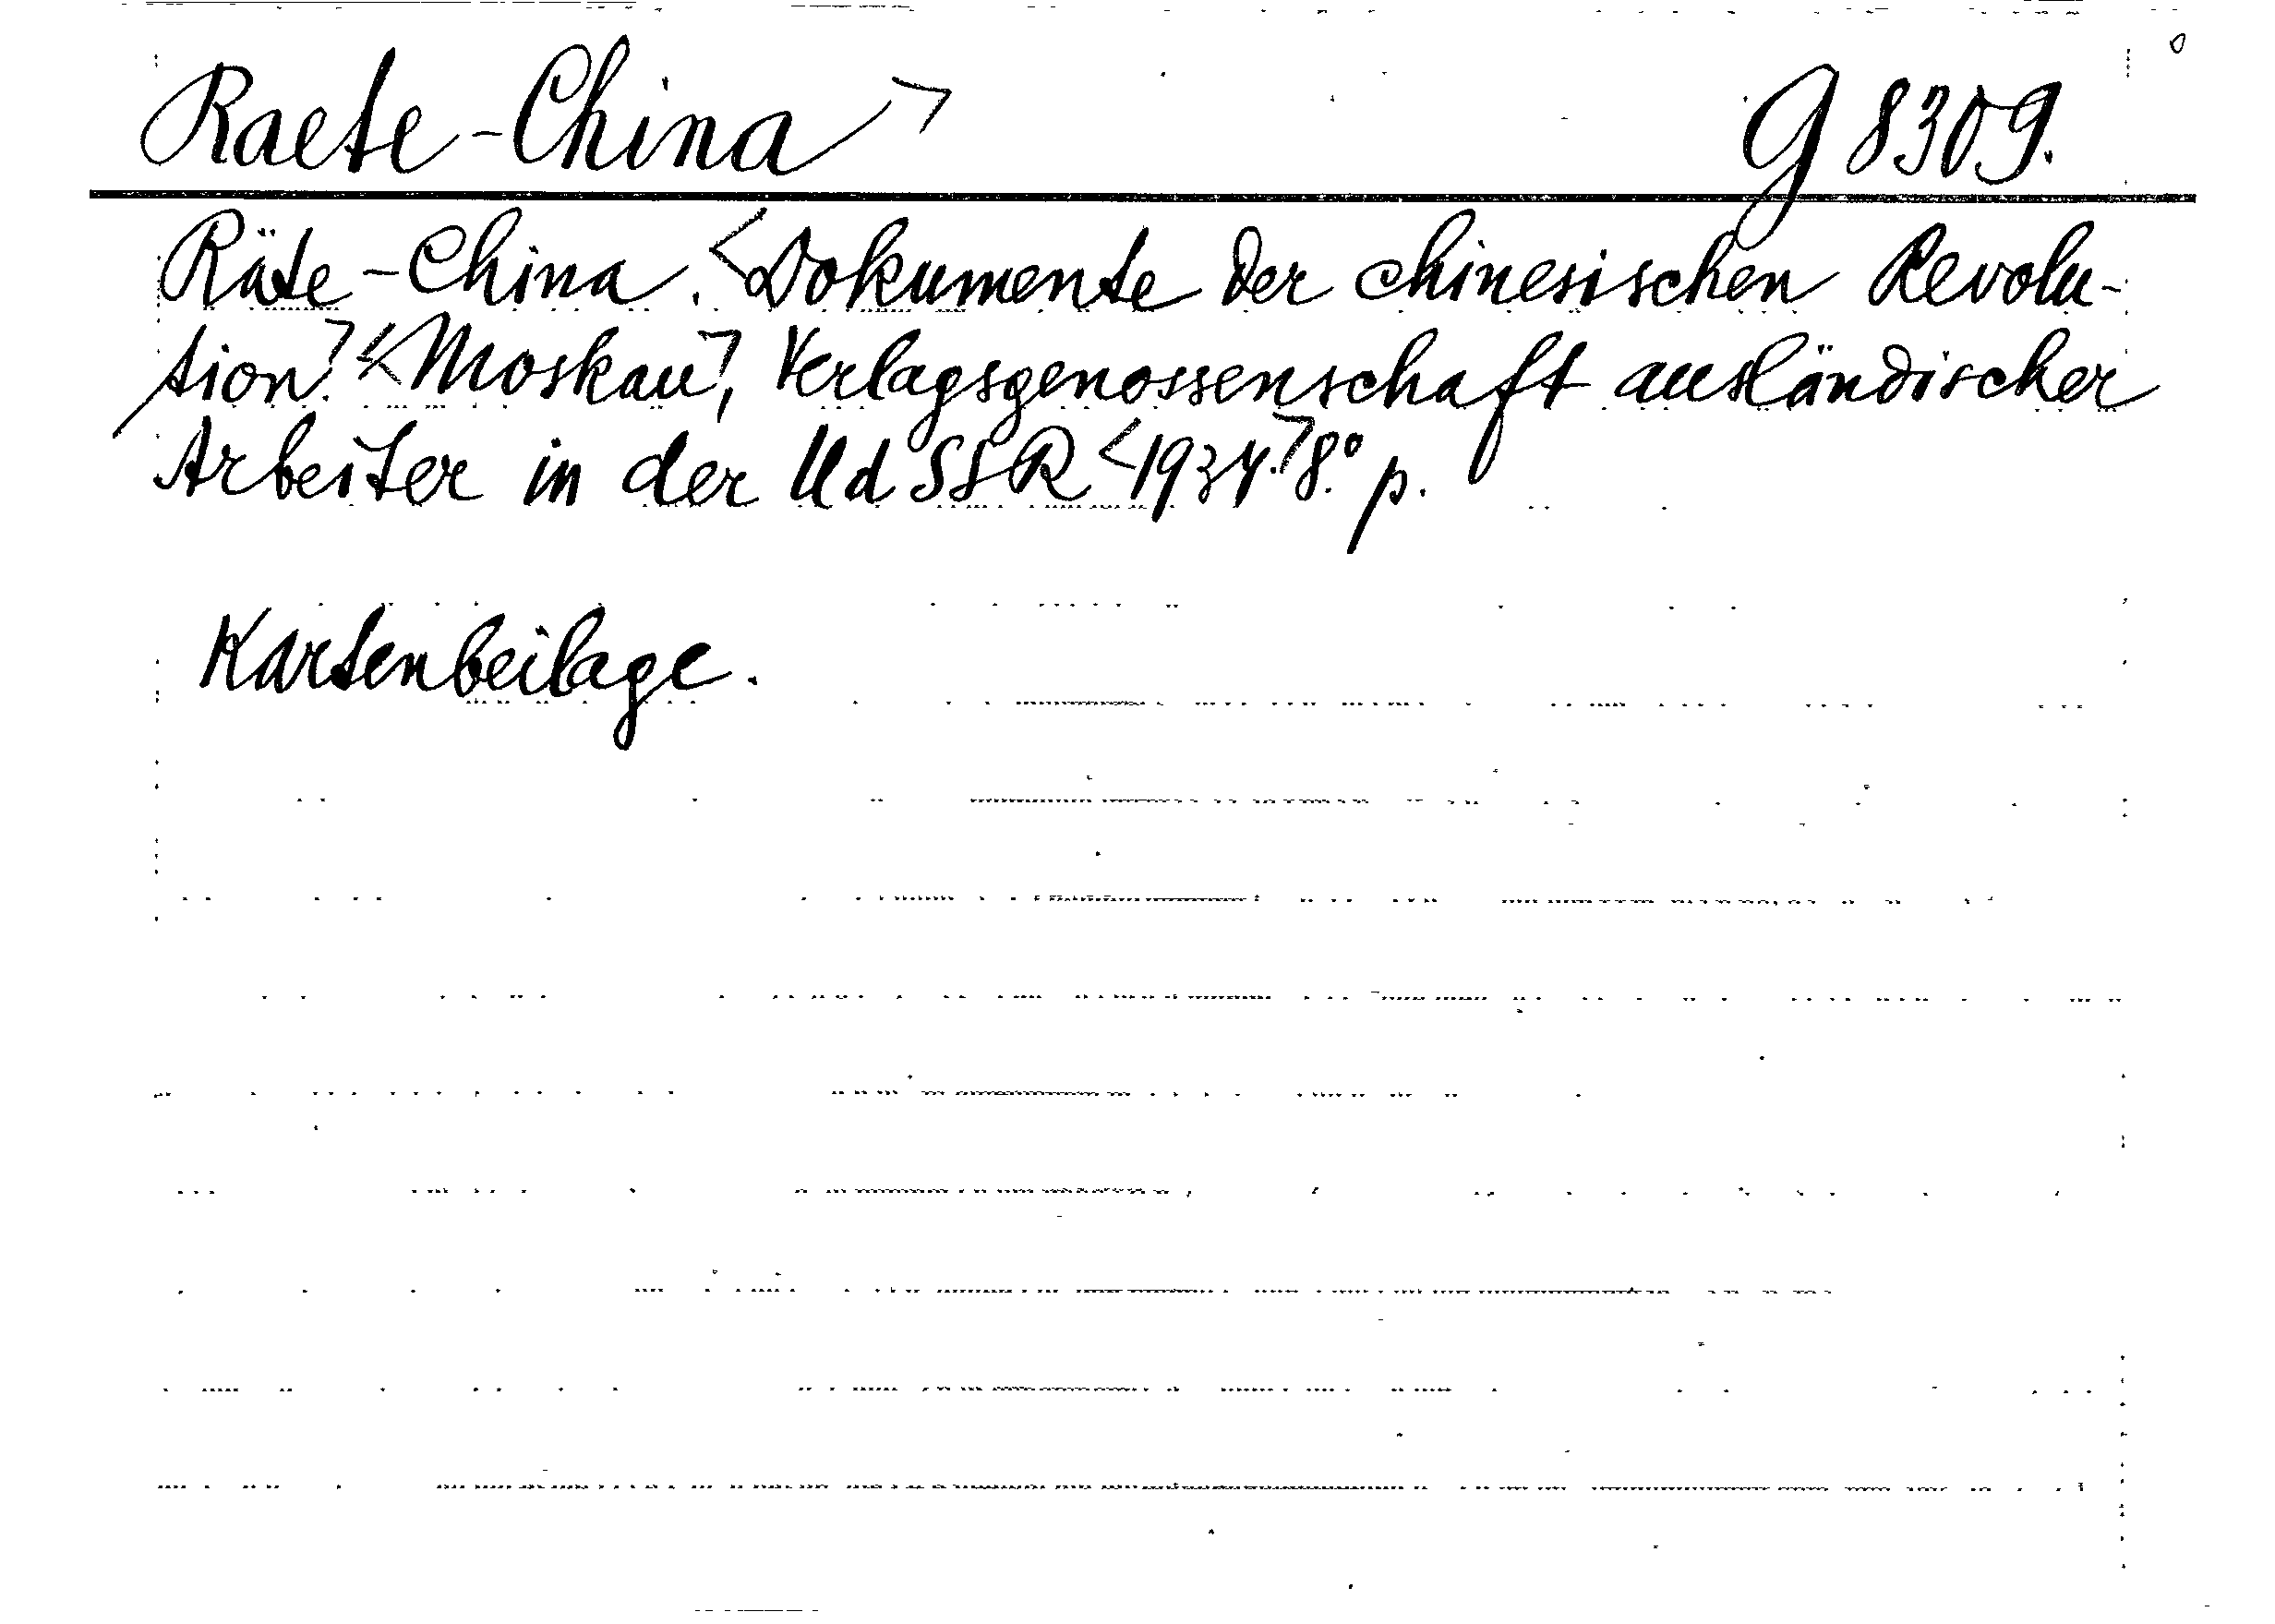 Raete-China> G 8309.
Räte-China. <Dokumente der chinesischen Revolu-
tion.> <Moskau>, Verlagsgenossenschaft ausländischer
Arbeiter in der UdSSR <1934.> 8.° p.
Kartenbeilage.